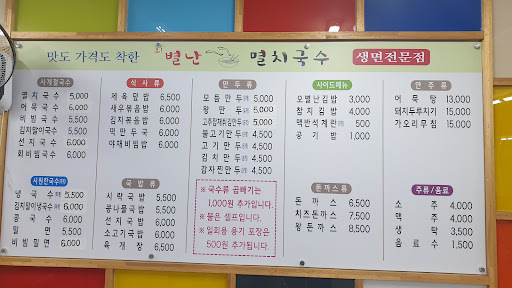 맛도 가격도 착한 별난 멸치국수 생면전문점
사계절국수
멸치국수 5,000
어묵국수 6,000
비빔국수 5,500
김치말이국수 5,500
선지국수 6,000
회비빔국수 6,000
시원한국수
냉국수 5,500
김치말이냉국수 6,000
콩국수 6,000
밀면 5,500
비빔밀면 6,000
식사류
제육덮밥 6,500
새우볶음밥 6,000
김치볶음밥 6,000
떡만두국 6,000
야채비빔밥 6,000
국밥류
시락국밥 5,500
콩나물국밥 5,500
선지국밥 6,000
소고기국밥 6,000
육개장 6,500
만두류
모듬만두 5,000
왕만두 5,000
고추잡채원김만두 5,000
불고기만두 4,500
고기만두 4,500
김치만두 4,500
감자찐만두 4,500
※국수류 곱빼기는
1,000원 추가입니다.
※물은 셀프입니다.
※일회용 용기 포장은
500원 추가됩니다.
사이드메뉴
오별난김밥 3,000
참치김밥 4,000
맥반석계란 500
공기밥 1,000
돈까스류
돈까스 6,500
치즈돈까스 7,500
왕돈까스 8,500
안주류
어묵탕 13,000
돼지두루치기 15,000
가오리무침 15,000
주류/음료
소주 4,000
맥주 4,000
생탁 3,500
음료수 1,500